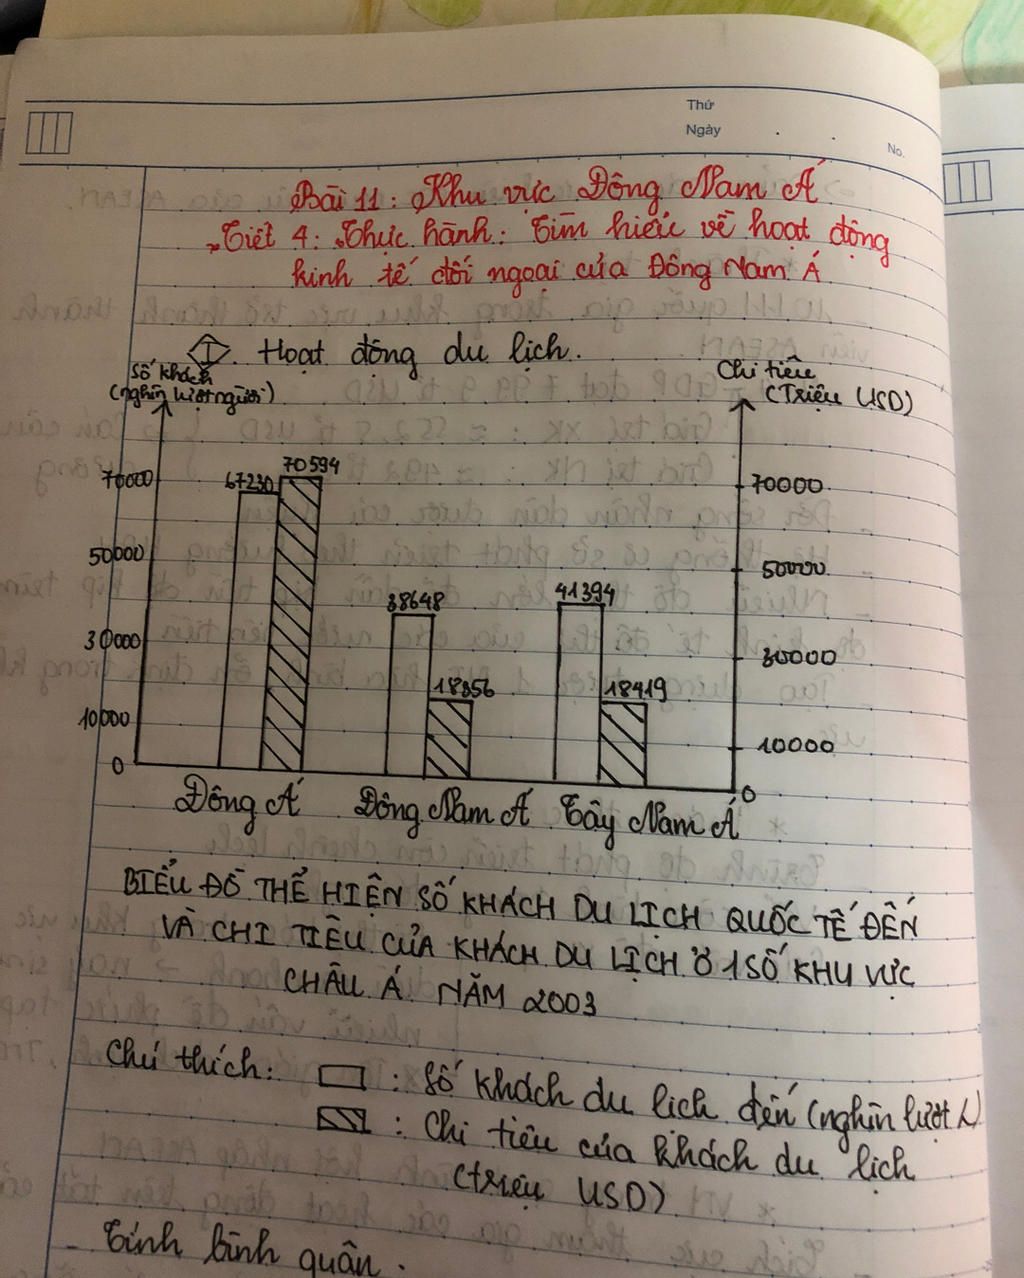 Thứ
Ngày
No.
Bài 11: Khu vực Đông Nam Á
Tiết 4: Thực hành: Tìm hiểu về hoạt động
kinh tế đối ngoại của Đông Nam Á
I Hoạt động du lịch.
Số khách
(nghìn lượt người)
Chi tiêu
(Triệu USD)
70594
67230
70000
70000
50000
50000
38648
41394
30000
30000
18356
18419
10000
10000
0
0
Đông Á Đông Nam Á Tây Nam Á
BIỂU ĐỒ THỂ HIỆN SỐ KHÁCH DU LỊCH QUỐC TẾ ĐẾN
VÀ CHI TIÊU CỦA KHÁCH DU LỊCH Ở 1 SỐ KHU VỰC
CHÂU Á NĂM 2003
Chú thích: : Số khách du lịch đến (nghìn lượt)
: Chi tiêu của khách du lịch
(triệu USD)
- Tính bình quân.